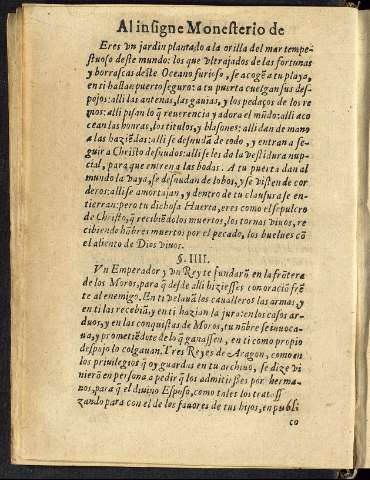 Al insigne Monesterio de
Eres vn jardin plantado a la orilla del mar tempe-
stuoso deste mundo: los que vltrajados de las fortunas
y borrascas deste Oceano furioso, se acogē a tu playa,
en ti hallan puerto seguro: a tu puerta cuelgan sus des-
pojos: alli las antenas, las gauias, y los pedaços de los re
mos: alli pisan lo q̃ reuerencia y adora el mũdo: alli aco
cean las honras, los titulos, y blasones: alli dan de mano
a las haziēdas: alli se desnudā de todo, y entran a se-
guir a Christo desnudos: alli se les da la vestidura nup-
cial, para que entren a las bodas. A tu puerta dan al
mundo la vaya, se desnudan de lobos, y se visten de cor
deros: alli se amortajan, y dentro de tu clausura se en-
tierran: pero tu dichosa Huerta, eres como el sepulcro
de Christo, q̃ recibiēdo los muertos, los tornas viuos, re
cibiendo hōbres muertos por el pecado, los buelues cō
el aliento de Dios viuos.
§. IIII.
Vn Emperador y vn Rey te fundarō en la frōtera
de los Moros, para q̃ desde alli hiziesses con oraciō frē
te al enemigo. En ti velauā los caualleros las armas, y
en ti las recebiā, y en ti hazian la jura: en los casos ar-
duos, y en las conquistas de Moros, tu nōbre se inuoca-
ua, y prometiēdote de lo q̃ ganassen, en ti como propio
despojo lo colgauan. Tres Reyes de Aragon, como en
los priuilegios q̃ oy guardas en tu archiuo, se dize vi
nierō en persona a pedir q̃ los admitiesses por herma-
nos, para q̃ el diuino Esposo, como tales los tratass
zando para con el de los fauores de tus hijos, en publi
co